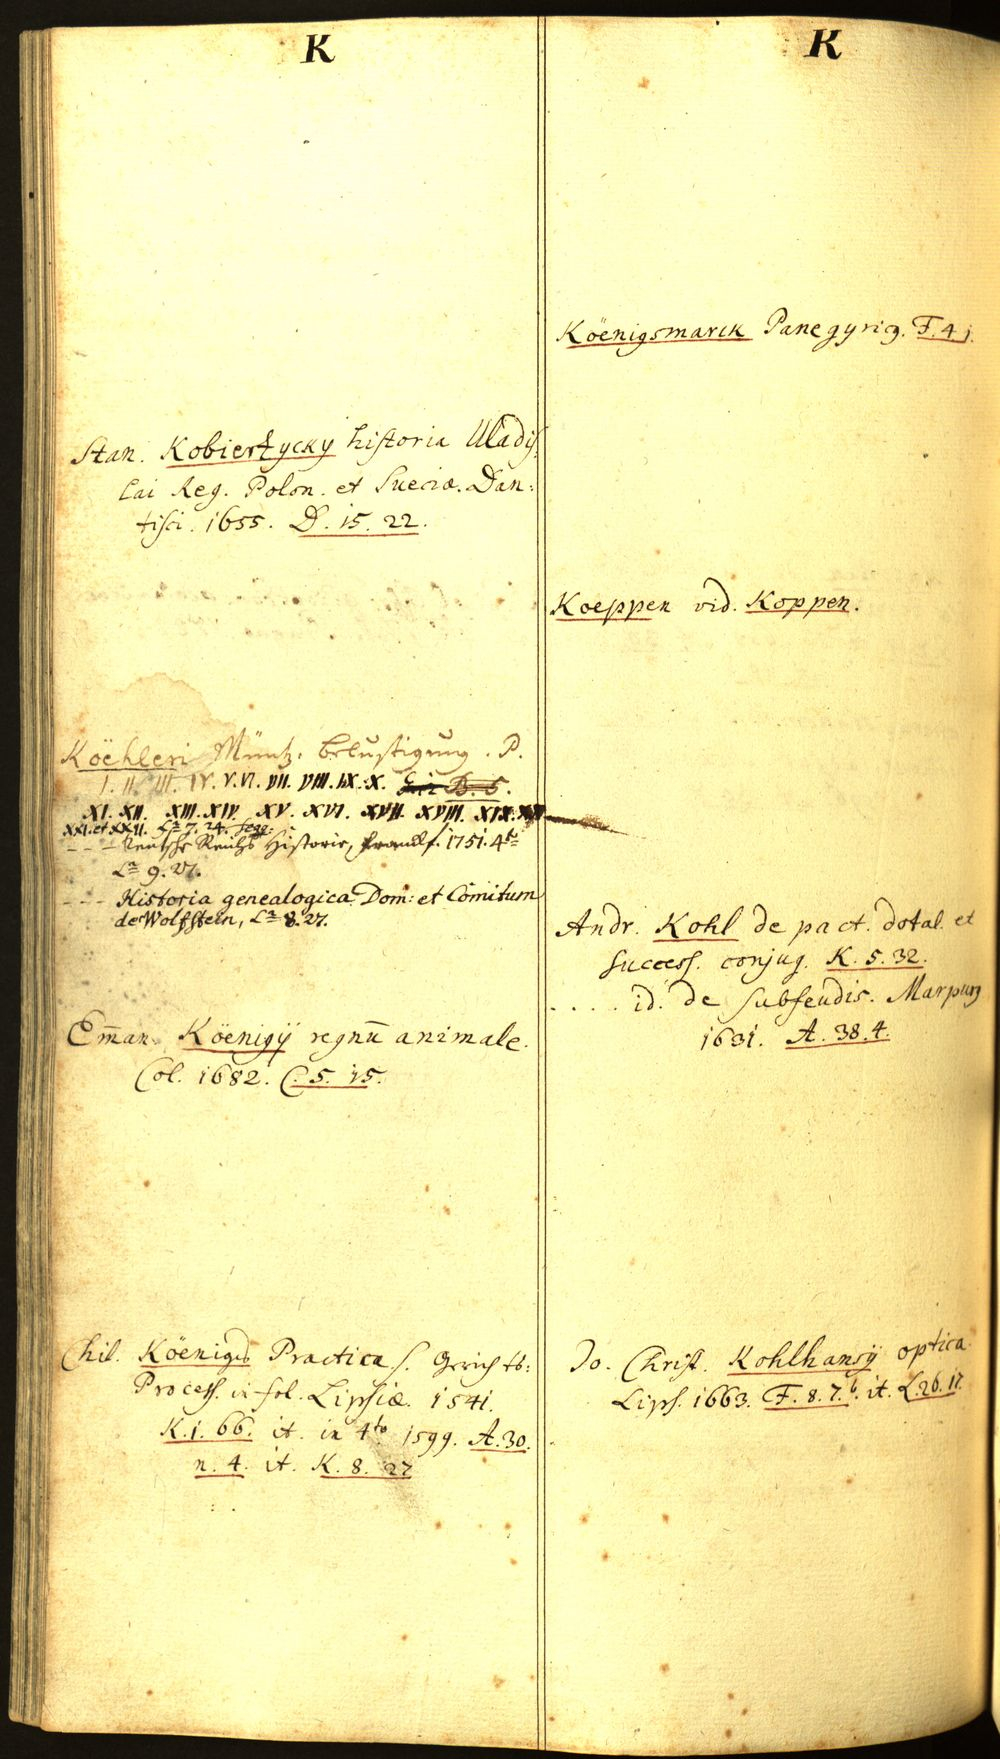 K
Stan. Kobierzycky historia Uladis
lai Reg. Polon. et Sueciæ. Dan:
tisci. 1655. D. 15. 22.
Köehleri Müntz. belustigung. P.
I. II. III. IV. V. VI. VII. VIII. IX. X. B. 5.
XI. XII. XIII. XIV. XV. XVI. XVII. XVIII. XIX. XX
XXI. et XXII. La 7. 24. seqq:
- - - Teutsche Reichs Historie, Franckf. 1751. 4to
La 9. 27.
- - - Historia genealogica Dom: et Comitum
de Wolfstein, La 8. 27.
Em̄an. Köenigÿ regnū animale.
Col. 1682. C. 5. 15.
Chil. Köenigs Practica s. Gerichts:
Process. in fol. Lipsiæ. 1541.
K. 1. 66. it. in 4to 1599. A. 30.
n. 4. it. K. 8. 27
K
Köenigsmarck Panegyric. F. 4
Koeppen vid. Koppen.
Andr. Kohl de pact. dotal. et
success. conjug. K. 5. 32.
. . . . id. de subfeudis. Marpurg
1631. A. 38. 4.
Jo. Christ. Kohlhansÿ optica
Lips. 1663. F. 8. 7. b. it. L. 26. 17.